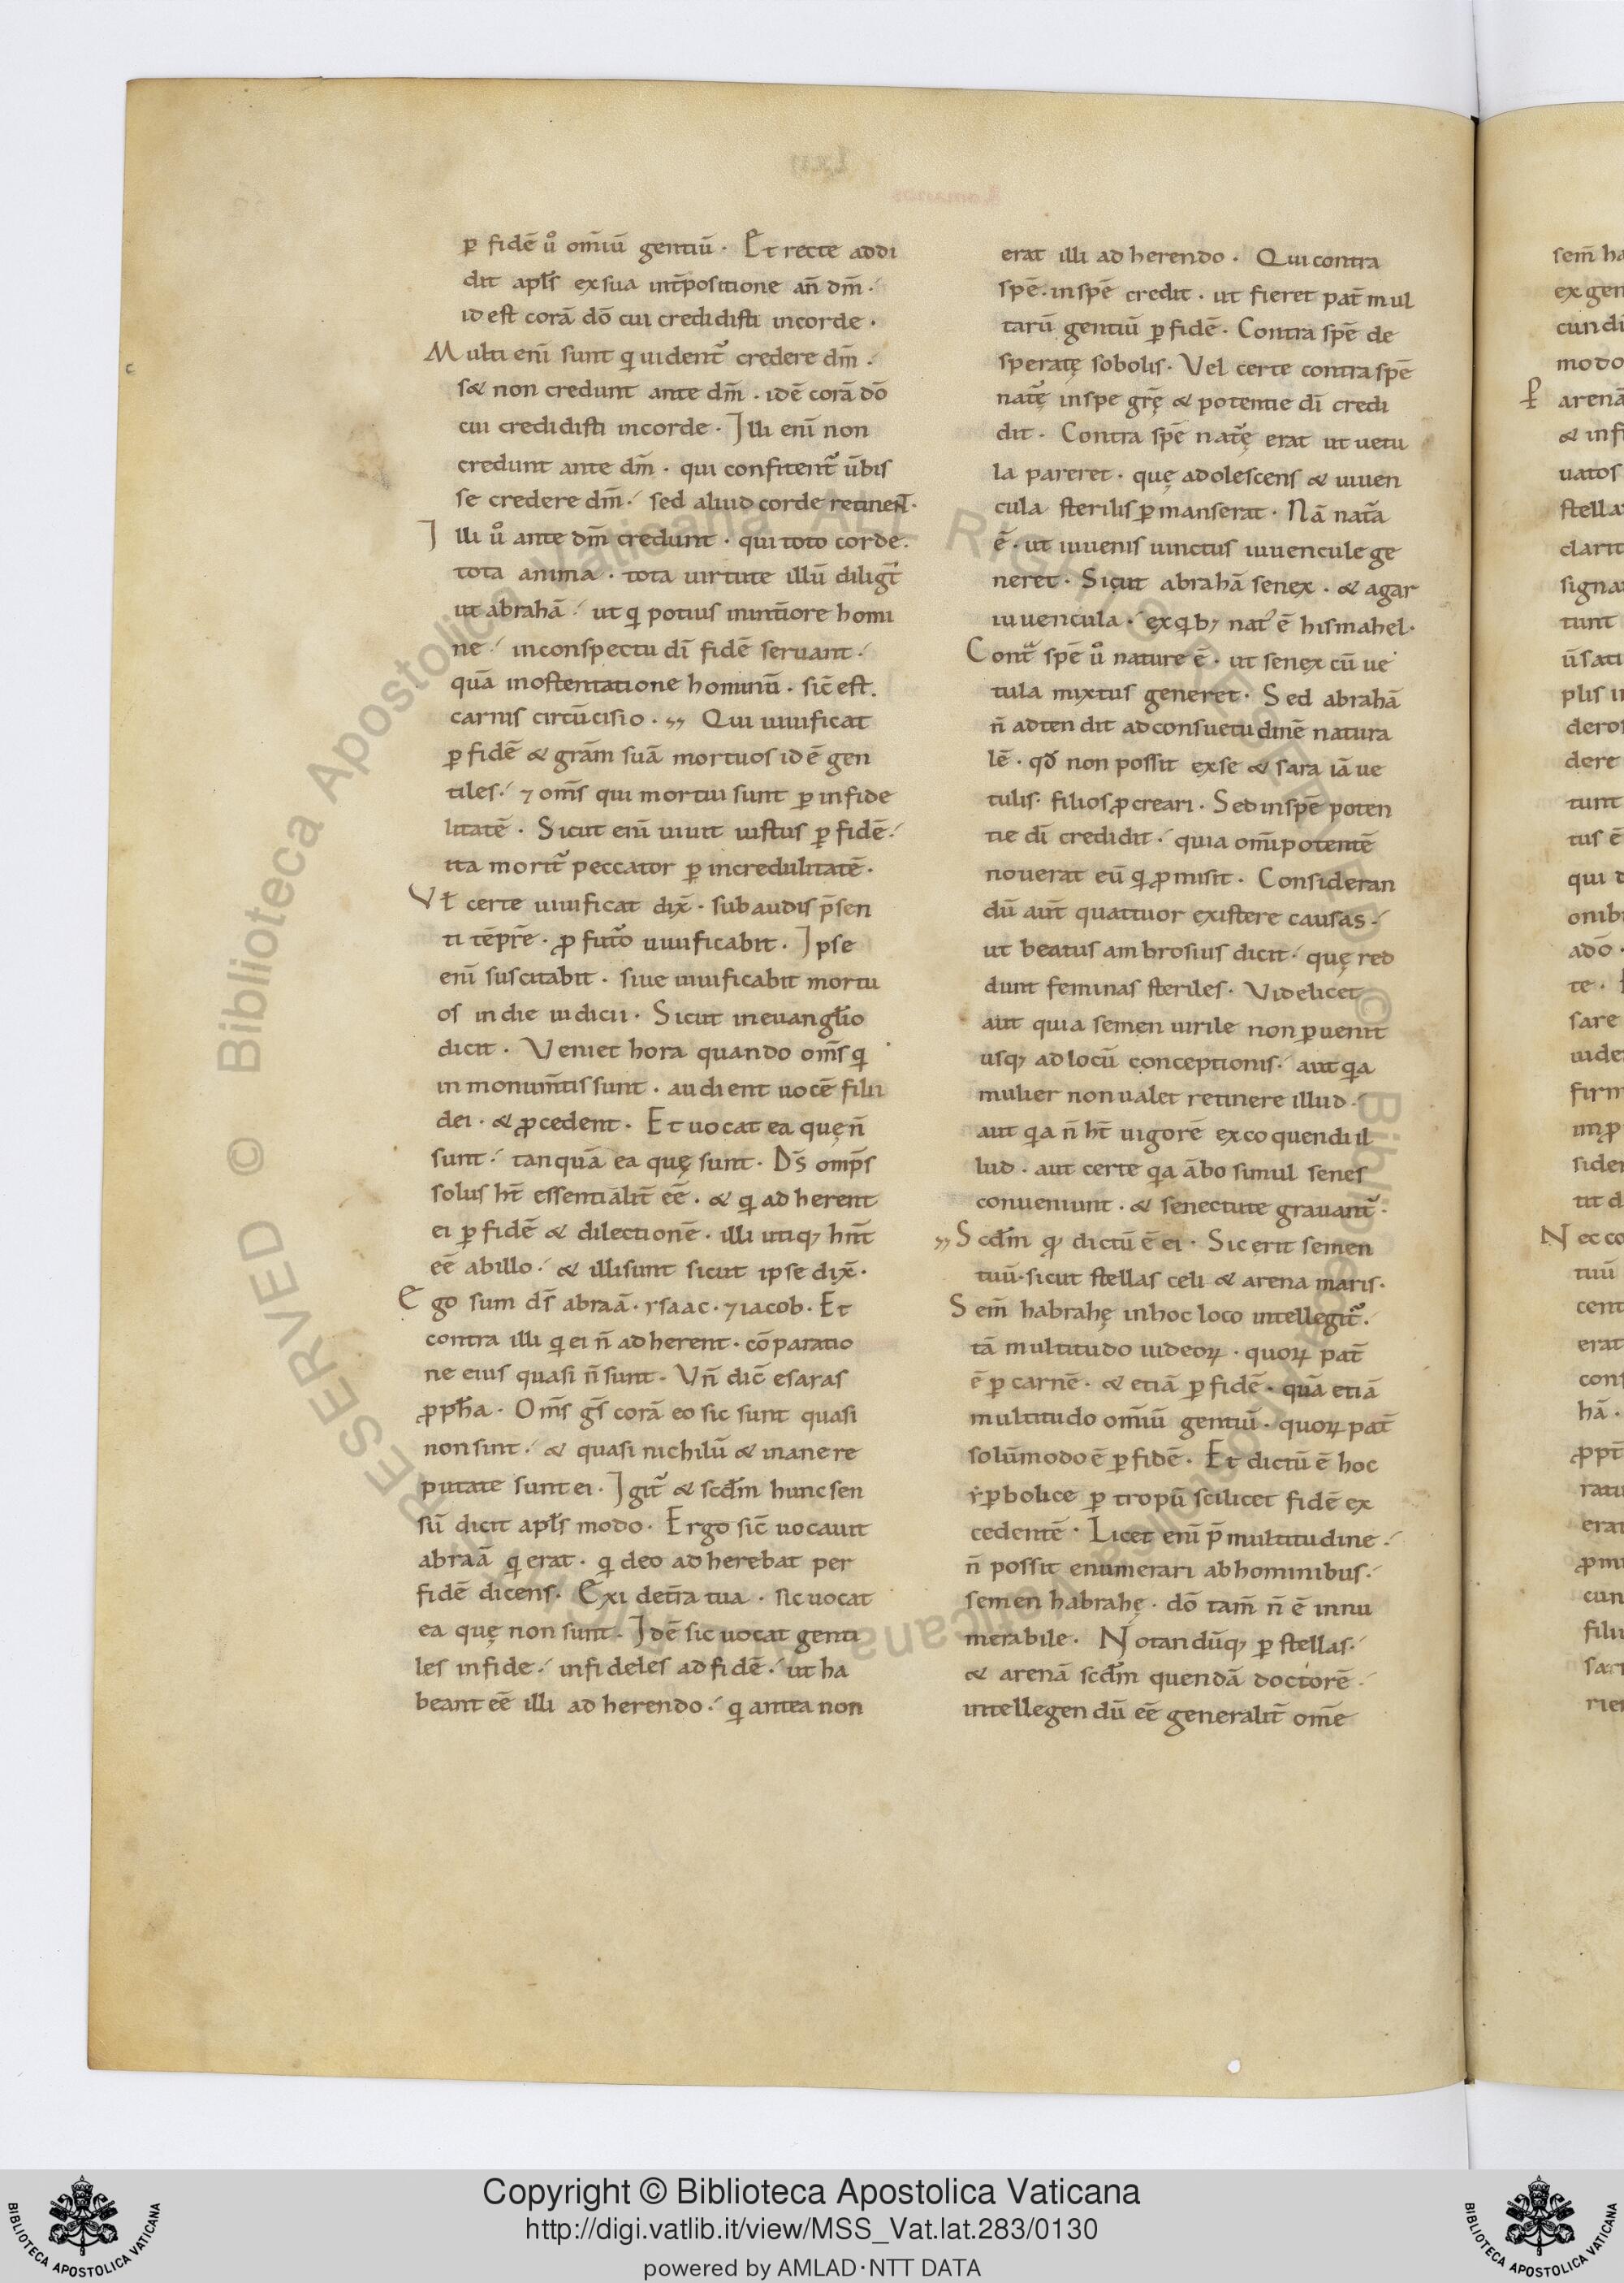 ꝑ fidē ů om̄iū gentiū · Et recte addi
dit apl̄s ex sua int̄positione an̄ dm̄ ·
id est corā dō cui credidisti in corde ·
Multi eni̅ sunt q uident᷑ credere dm̄ ·
s& non credunt ante dm̄ · idē corā dō
cui credidisti in corde · Illi eni̅ non
credunt ante dm̄ · qui confitent᷑ ūbis
se credere dm̄ · sed aliud corde retinen̄t ·
Illi ů ante dm̄ credunt · qui toto corde ·
tota anima · tota uirtute illū diligt̄
ut abrahā · ut q potius in int̄iore homi
ne · in conspectu dī fidē seruant ·
quā in ostentatione hominū · sic̄ est ·
carnis circūcisio · Qui uiuificat
ꝑ fidē & gram̄ suā mortuos idē gen
tiles · ⁊ om̄s qui mortui sunt ꝑ infide
litatē · Sicut eni̅ uiuit iustus ꝑ fidē ·
ita morit᷑ peccator ꝑ incredulitatē ·
Vł certe uiuificat dix̄ · subaudis p̄sen
ti tēpr̄e · ꝓ futo᷑ uiuificabit · Ipse
eni̅ suscitabit · siue uiuificabit mortu
os in die iudicii · Sicut in euangl̄io
dicit · Veniet hora quando om̄s q
in monum̄tis sunt · audient uocē filii
dei · & ꝓcedent · Et uocat ea quę n̄
sunt · tanquā ea quę sunt · Ds̄ omp̄s
solus ht̄ essentialit̄ eē · & q adherent
ei ꝑ fidē & dilectionē · illi utiq; hn̄t
eē ab illo · & illi sunt sicut ipse dix̄ ·
Ego sum ds̄ abraā · ysaac · ⁊ iacob · Et
contra illi q ei n̄ adherent · cōparatio
ne eius quasi n̄ sunt · Vn̄ dic̄ esaias
ꝓph̄a · Om̄s gs̄ corā eo sic sunt quasi
non sint · & quasi nichilū & inane re
putate sunt ei · Igit᷑ & scd̄m hunc sen
sū dicit apl̄s modo · Ergo sic̄ uocauit
abraā q erat · q deo adherebat per
fidē dicens · Exi de tr̄a tua · sic uocat
ea quę non sunt · Idē sic uocat genti
les in fide · infideles ad fidē · ut ha
beant eē illi adherendo · q antea non
erat illi adherendo · Qui contra
spē · in spē credit · ut fieret pat̄ mul
tarū gentiū ꝑ fidē · Contra spē de
speratę sobolis · Vel certe contra spē
nat᷑ę in spe gr̄ę & potentie dī credi
dit · Contra spē nat᷑ę erat ut uetu
la pareret · quę adolescens & iuuen
cula sterilis ꝑmanserat · Nā nat᷑a
ē · ut iuuenis uinctus iuuencule ge
neret · Sicut abrahā senex · & agar
iuuencula · ex qb; nat᷒ ē hismahel ·
Cont᷑ spē ů nature ē · ut senex cū ue
tula mixtus generet · Sed abrahā
n̄ adtendit ad consuetudinē natura
lē · qd̄ non possit ex se & sara iā ue
tulis · filios ꝓcreari · Sed in spē poten
tie dī credidit · quia om̄ipotentē
nouerat eū q ꝓmisit · Consideran
dū aut̄ quattuor existere causas ·
ut beatus ambrosius dicit · quę red
dunt feminas steriles · Videlicet
aut quia semen uirile non ꝑuenit
usq; ad locū conceptionis · aut qa
mulier non ualet retinere illud ·
aut qa n̄ ht̄ uigorē excoquendi il
lud · aut certe qa ābo simul senes
conueniunt · & senectute grauant᷑ ·
Scd̄m q; dictū ē ei · Sic erit semen
tuū · sicut stellas celi & arena maris ·
Sem̄ habrahę in hoc loco intellegit᷑ ·
tā multitudo iudeoꝝ · quoꝝ pat̄
ē ꝑ carnē · & etiā ꝑ fidē · quā etiā
multitudo om̄iū gentiū · quoꝝ pat̄
solūmodo ē ꝑ fidē · Et dictū ē hoc
yꝑbolice ꝑ tropū scilicet fidē ex
cedentē · Licet eni̅ p̄ multitudine ·
n̄ possit enumerari ab hominibus ·
semen habrahę · dō tam̄ n̄ ē innu
merabile · Notandūq; ꝑ stellas ·
& arenā scd̄m quendā doctorē ·
intellegendū eē generalit̄ om̄e
Copyright © Biblioteca Apostolica Vaticana
http://digi.vatlib.it/view/MSS_Vat.lat.283/0130
powered by AMLAD·NTT DATA